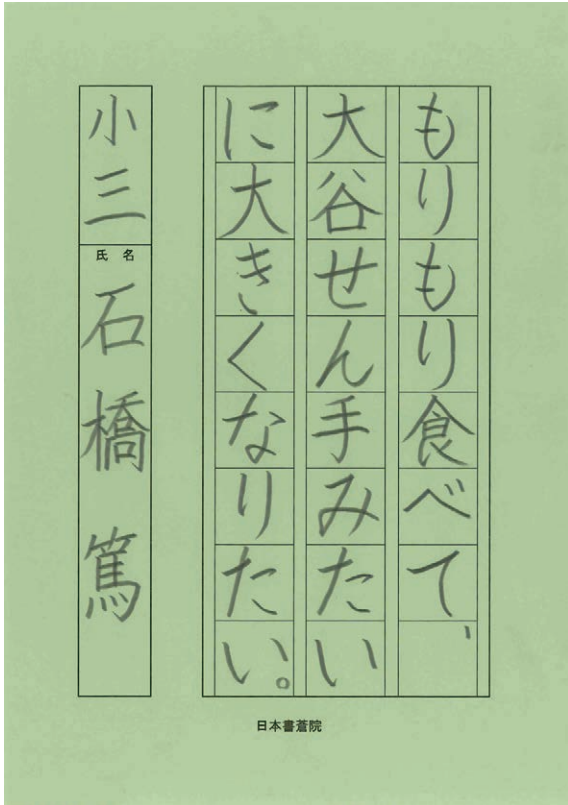 もりもり食べて、
大谷せん手みたい
に大きくなりたい。
小三
氏名
石橋篤
日本書蒼院